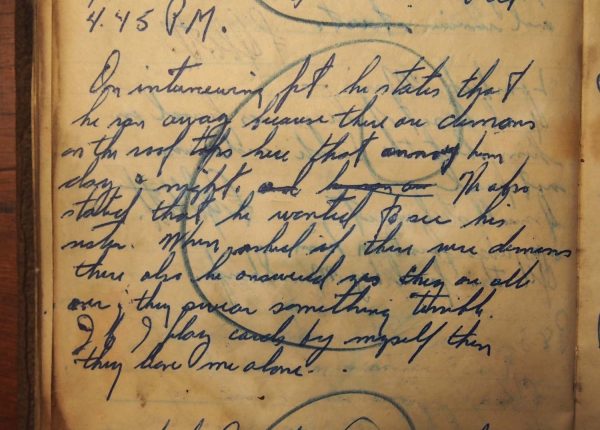 4.45 P.M.
On interviewing pt. he states that
he ran away because there are demons
on the roof tops here that annoy him
day & night. He also
stated that he wanted to see his
sister. When asked if there were demons
there also he answered yes they are all
over, they swear something terrible.
If I play cards by myself then
they leave me alone.